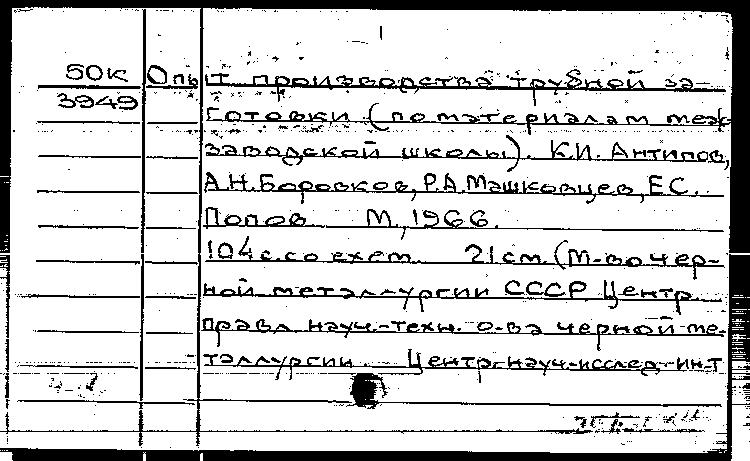 50К Опыт производства трубной за-
3949 готовки (по материалам меж
заводской школы). К.И. Антипов,
А.Н. Боровков, Р.А. Машковцев, Е.С.
Попов М., 1966.
104 с. со схем. 21 см. (М-во чер-
ной металлургии СССР Центр.
правл. науч.-техн. о-ва черной ме-
таллургии Центр. науч.-исслед. ин-т